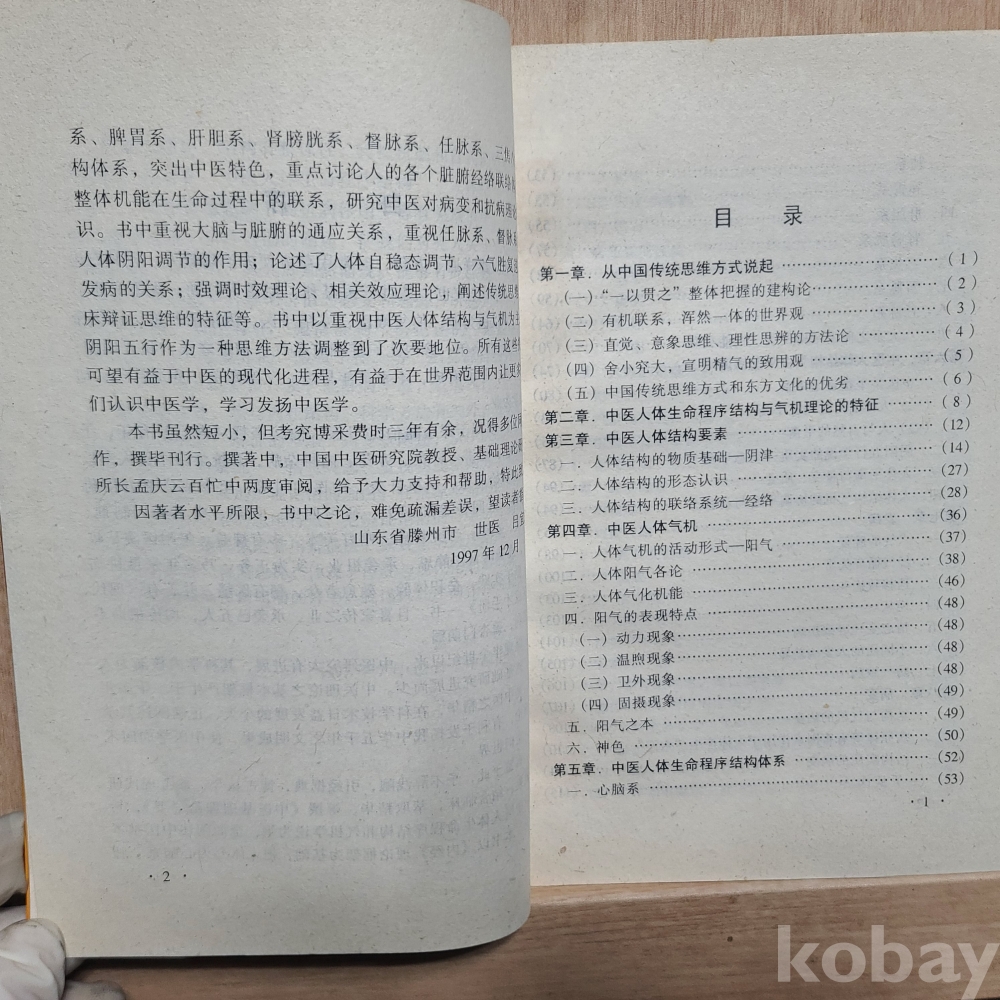 系、脾胃系、肝胆系、肾膀胱系、督脉系、任脉系、三焦
构体系，突出中医特色，重点讨论人的各个脏腑经络联络
整体机能在生命过程中的联系，研究中医对病变和抗病理论
识。书中重视大脑与脏腑的通应关系，重视任脉系、督脉系
人体阴阳调节的作用；论述了人体自稳态调节、六气胜复
发病的关系；强调时效理论、相关效应理论，阐述传统思
床辩证思维的特征等。书中以重视中医人体结构与气机为主
阴阳五行作为一种思维方法调整到了次要地位。所有这些
可望有益于中医的现代化进程，有益于在世界范围内让更
们认识中医学，学习发扬中医学。
本书虽然短小，但考究博采费时三年有余，况得多位
作，撰毕刊行。撰著中，中国中医研究院教授、基础理论
所长孟庆云百忙中两度审阅，给予大力支持和帮助，特此
因著者水平所限，书中之论，难免疏漏差误，望读者
山东省滕州市 世医 吕
1997年12月
·2·
目 录
第一章．从中国传统思维方式说起 ……………（1）
（一）“一以贯之”整体把握的建构论 ……………（2）
（二）有机联系，浑然一体的世界观 ……………（3）
（三）直觉、意象思维、理性思辨的方法论 ……………（4）
（四）舍小究大，宣明精气的致用观 ……………（5）
（五）中国传统思维方式和东方文化的优劣 ……………（6）
第二章．中医人体生命程序结构与气机理论的特征 ………（8）
第三章．中医人体结构要素 ……………（12）
一．人体结构的物质基础—阴津 ……………（14）
二．人体结构的形态认识 ……………（27）
三．人体结构的联络系统—经络 ……………（28）
第四章．中医人体气机 ……………（36）
一．人体气机的活动形式—阳气 ……………（37）
二．人体阳气各论 ……………（38）
三．人体气化机能 ……………（46）
四．阳气的表现特点 ……………（48）
（一）动力现象 ……………（48）
（二）温煦现象 ……………（48）
（三）卫外现象 ……………（48）
（四）固摄现象 ……………（49）
五．阳气之本 ……………（49）
六．神色 ……………（50）
第五章．中医人体生命程序结构体系 ……………（52）
一．心脑系 ……………（53）
·1·
kobay